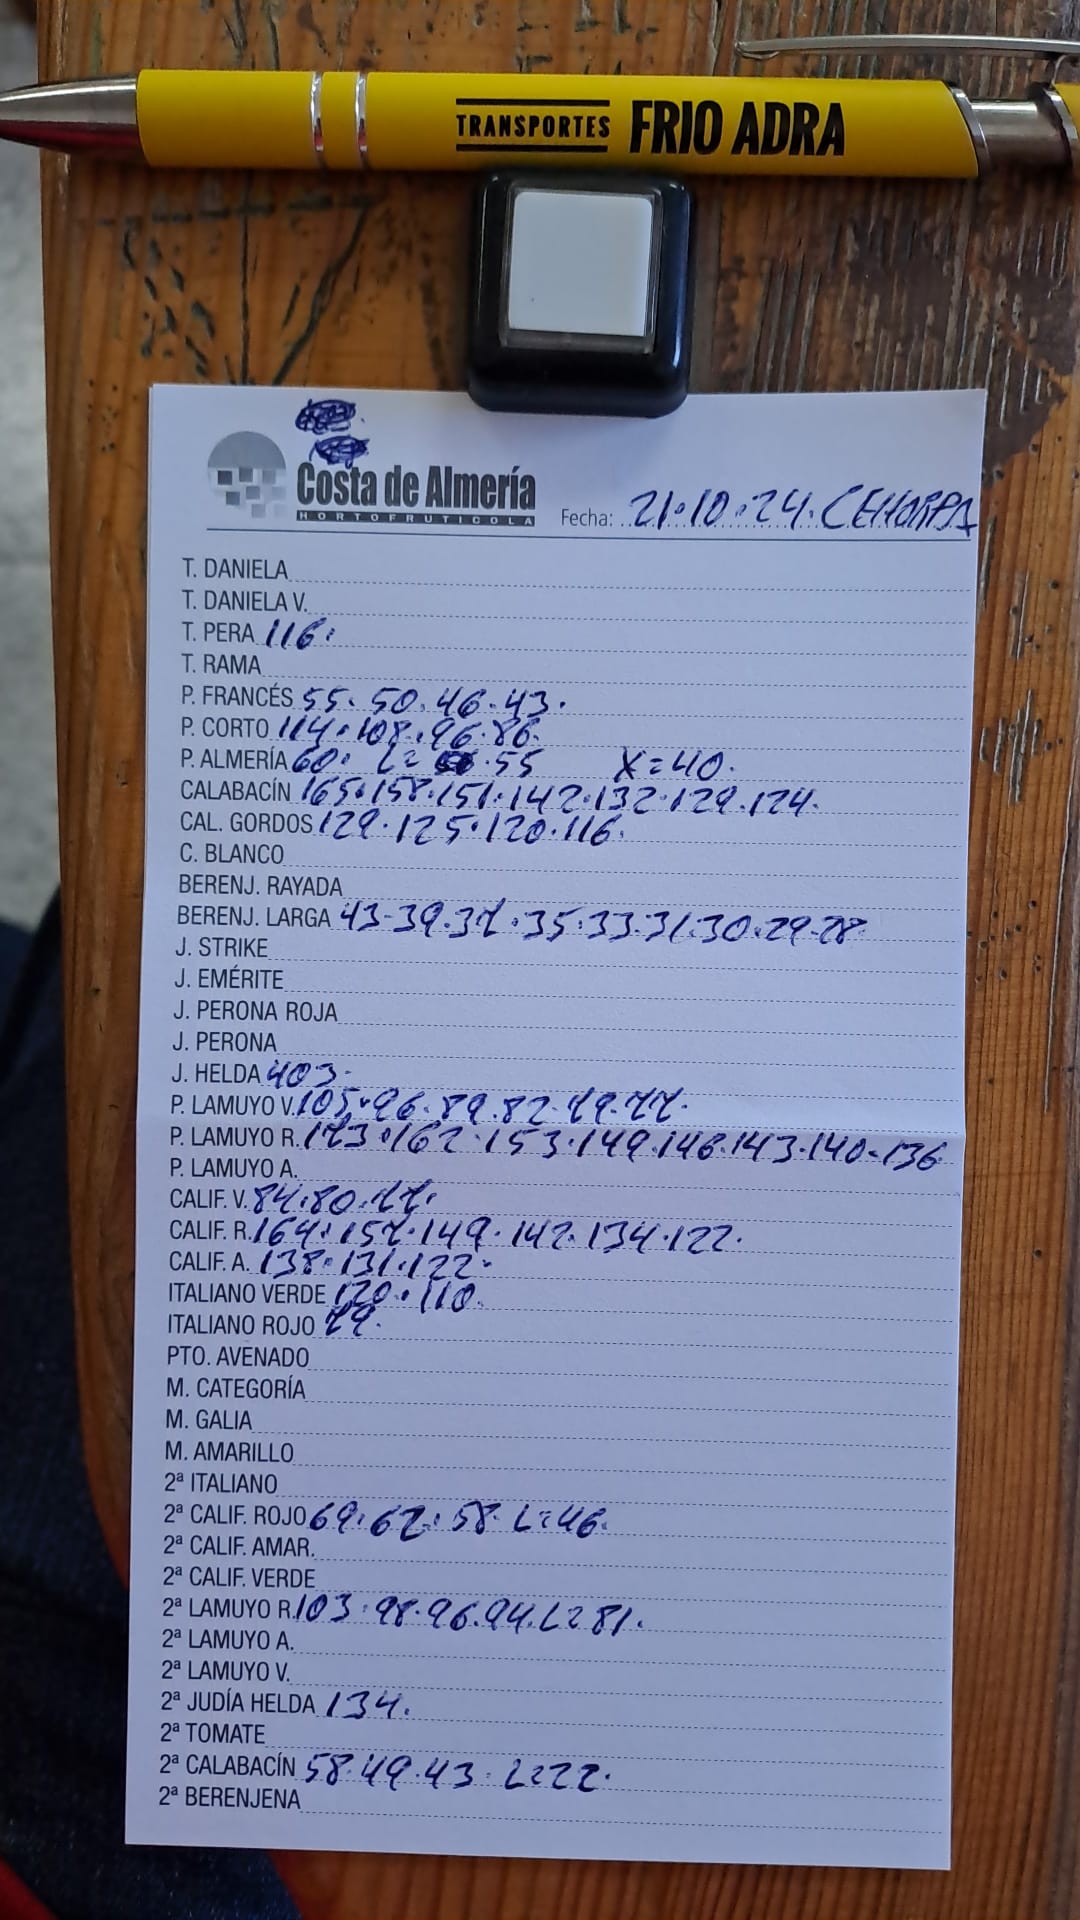 TRANSPORTES FRIO ADRA
Costa de Almería
HORTOFRUTICOLA
Fecha: 21.10.24. CEHORPA
T. DANIELA
T. DANIELA V.
T. PERA 116.
T. RAMA
P. FRANCÉS 55. 50. 46. 43.
P. CORTO 114. 108. 96. 86.
P. ALMERÍA 60. L= 55 X=40.
CALABACÍN 165.158.151.142.132.129.124.
CAL. GORDOS 129.125.120.116.
C. BLANCO
BERENJ. RAYADA
BERENJ. LARGA 43-39.37.35.33.31.30.29.28
J. STRIKE
J. EMÉRITE
J. PERONA ROJA
J. PERONA
J. HELDA 403.
P. LAMUYO V. 105.96.89.82.79.77.
P. LAMUYO R. 173.162.153.149.146.143.140.136
P. LAMUYO A.
CALIF. V. 84.80.77.
CALIF. R. 164.157.149.142.134.122.
CALIF. A. 138.131.122.
ITALIANO VERDE 120.110.
ITALIANO ROJO 79.
PTO. AVENADO
M. CATEGORÍA
M. GALIA
M. AMARILLO
2ª ITALIANO
2ª CALIF. ROJO 69.62.58. L=46.
2ª CALIF. AMAR.
2ª CALIF. VERDE
2ª LAMUYO R. 103.98.96.94. L=81.
2ª LAMUYO A.
2ª LAMUYO V.
2ª JUDÍA HELDA 134.
2ª TOMATE
2ª CALABACÍN 58.49.43. L=22.
2ª BERENJENA